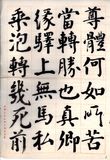 尊體何如所苦
當轉勝也真卿
緣驛上無馬私
乘轉幾死前